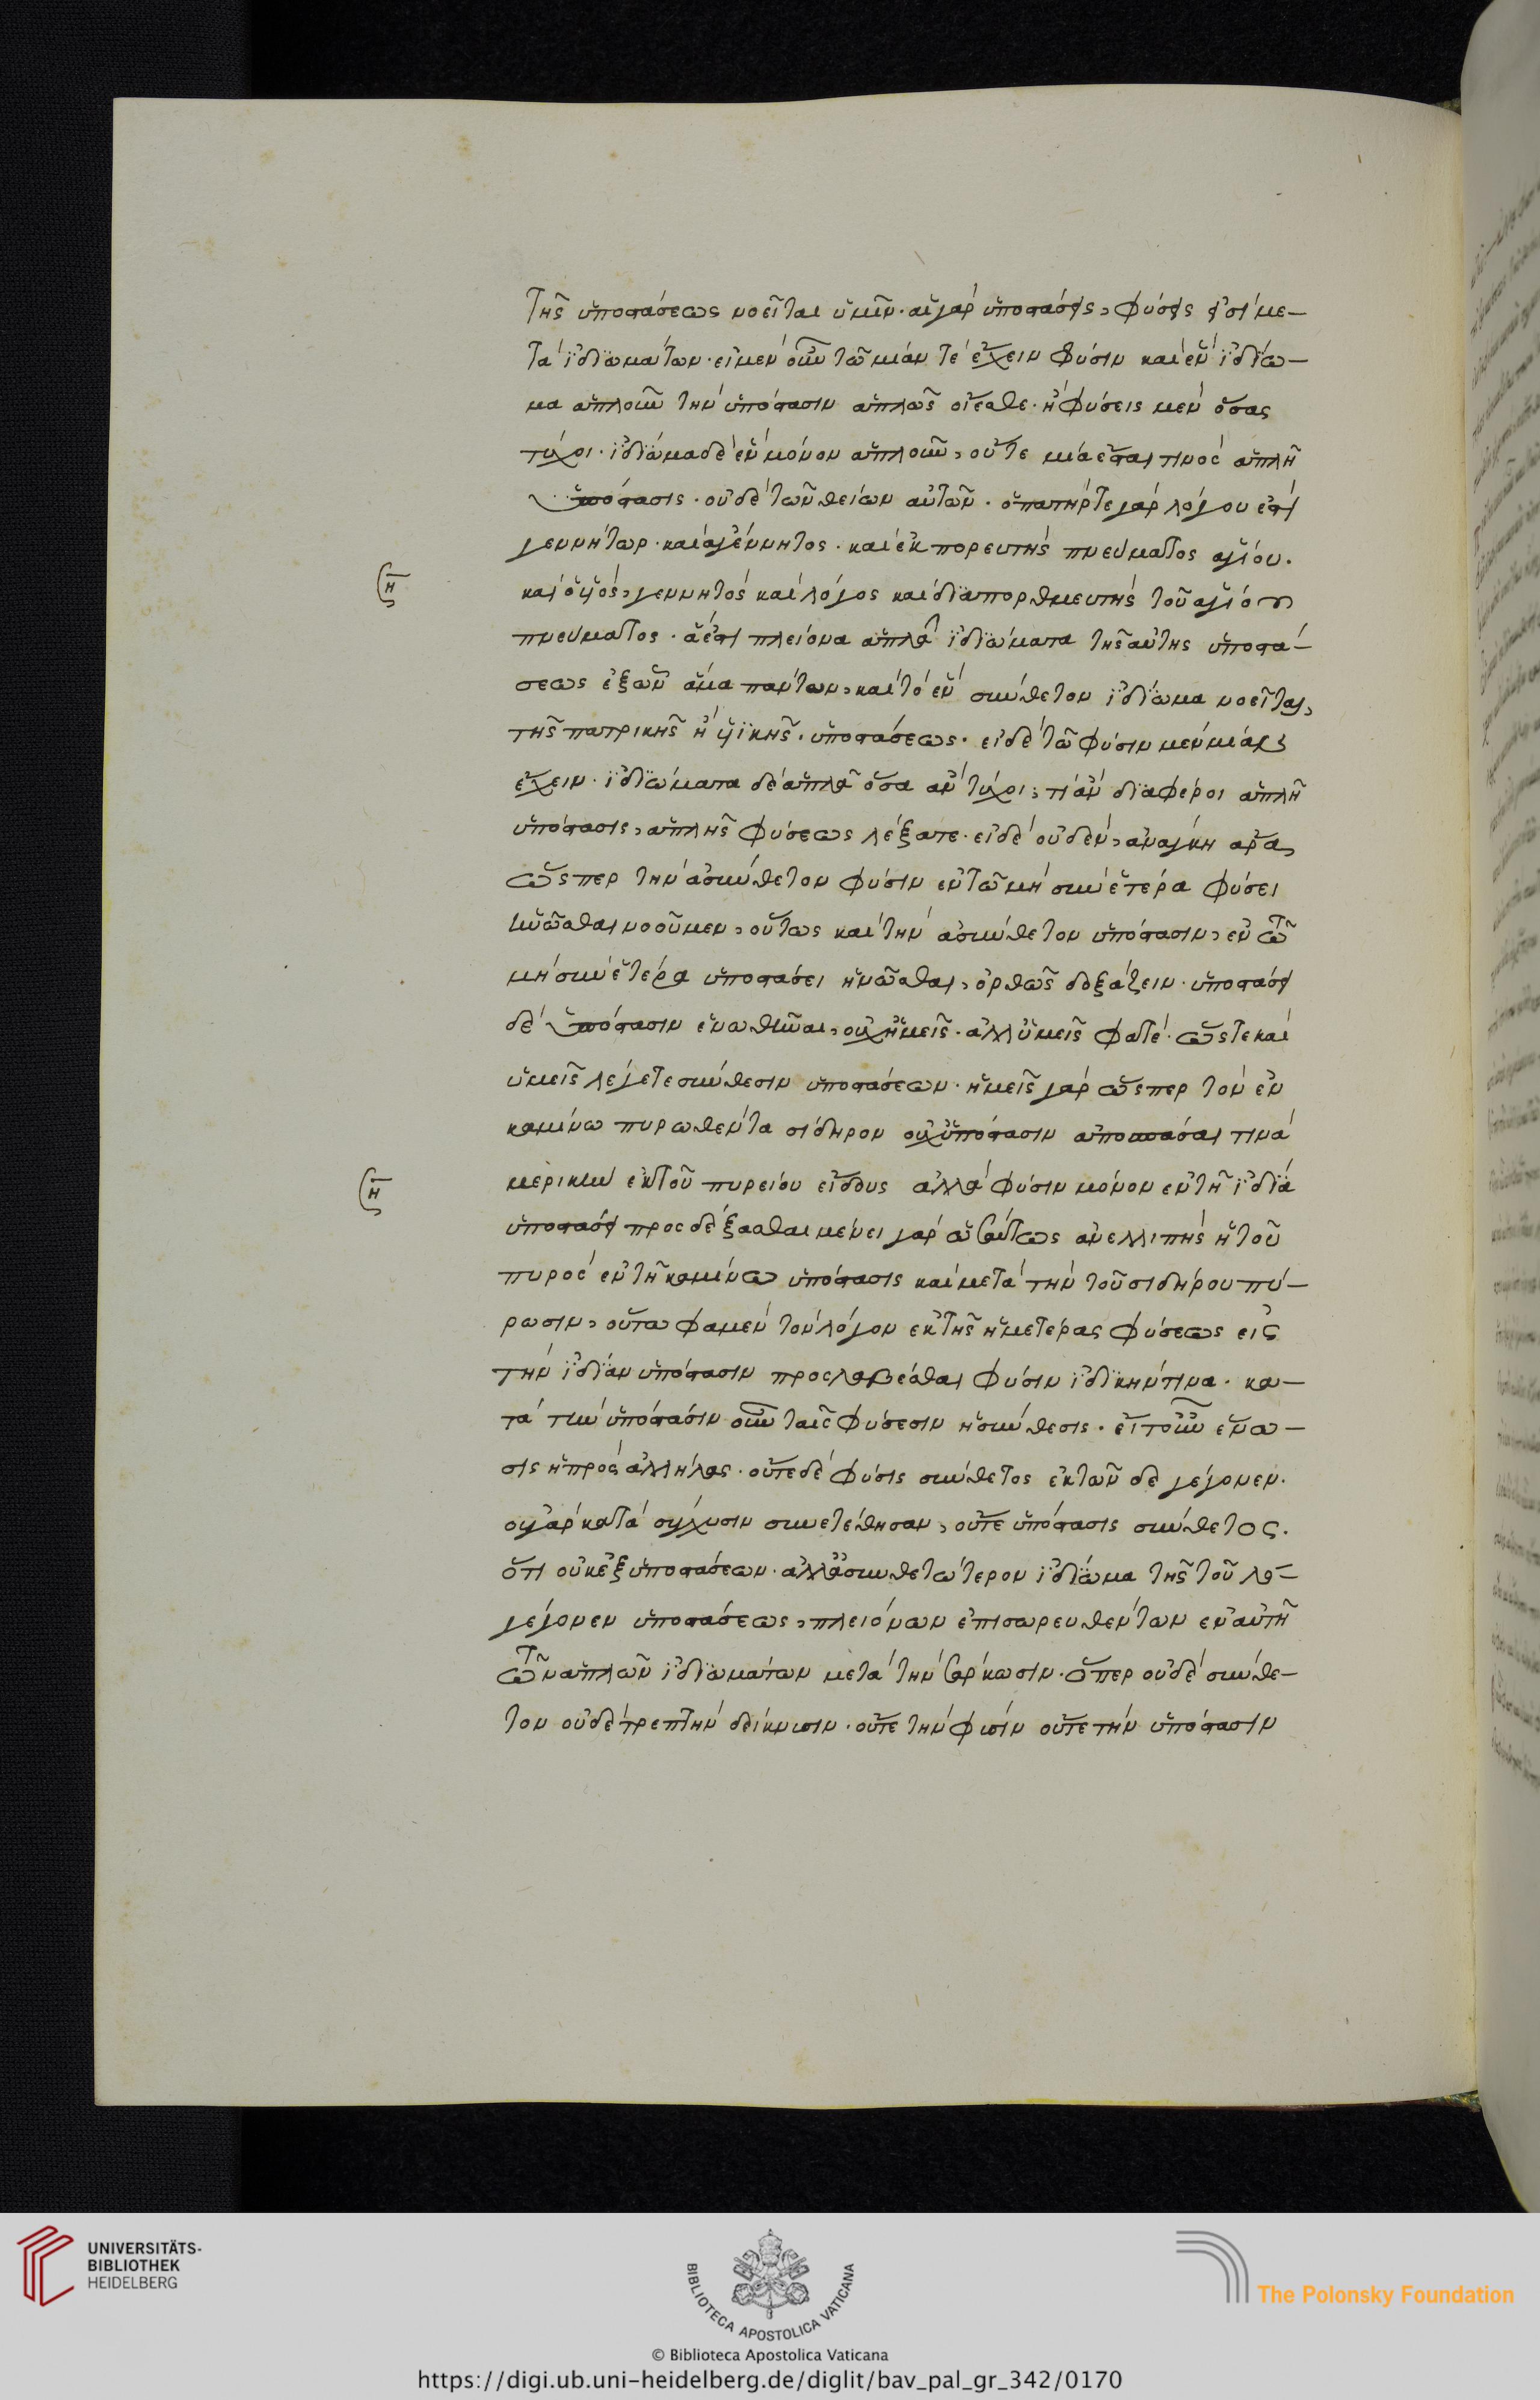 τῆς ὑποστάσεως νοεῖται ὑμῖν· αἱ γὰρ ὑποστάσεις, φύσεις εἰσὶ με–
τὰ ἰδϊωμάτων· εἰ μὲν οὖν τῶ μίαν τὲ ἔχειν φύσιν καὶ ἓν ἰδίω–
μα ἁπλοῦν τὴν ὑπόστασιν ἁπλῶς οἴεσθε· ἢ φύσεις μὲν ὅσας
τύχοι· ἰδίωμα δὲ ἓν μόνον ἁπλοῦν, οὔτε μία ἔσται τινὸς ἁπλῆ
ὑπόστασις· οὐδὲ τῶν θείων αὐτῶν· ὁ πατήρ τε γὰρ λόγου ἐστὶ
γεννήτωρ· καὶ ἀγέννητος· καὶ ἐκπορευτὴς πνεύματος ἁγίου·
καὶ ὁ ὑϊὸς, γεννητὸς καὶ λόγος καὶ διαπορθμευτὴς τοῦ ἁγίου
πνεύματος· ἅ ἐστι πλείονα ἁπλᾶ ἰδϊώματα τῆς αὐτῆς ὑποστά–
σεως ἐξ ὧν ἅμα πάντων, καὶ τὸ ἓν σύνθετον ἰδίωμα νοεῖται,
τῆς πατρικῆς ἢ ὑϊκῆς· ὑποστάσεως· εἰ δὲ τῶ φύσιν μὲν μίαν
ἔχειν· ἰδϊώματα δὲ ἁπλᾶ ὅσα ἂν τύχοι, τί ἂν διαφέροι ἁπλῆ
ὑπόστασις, ἁπλῆς φύσεως λέξατε· εἰ δὲ οὐδὲν, ἀνάγκη ἄρα,
ὥσπερ τὴν ἀσύνθετον φύσιν ἐν τῶ μὴ σὺν ἑτέρα φύσει
ἡνῶσθαι νοοῦμεν, οὕτως καὶ τὴν ἀσύνθετον ὑπόστασιν, ἐν τῶ
μὴ σὺν ἑτέρα ὑποστάσει ἡνῶσθαι, ὀρθῶς δοξάζειν· ὑποστάσει
δὲ ὑπόστασιν ἑνωθῆναι, οὐχ ἡμεῖς· ἀλλ' ὑμεῖς φατέ· ὥστε καὶ
ὑμεῖς λέγετε σύνθεσιν ὑποστάσεων· ἡμεῖς γὰρ ὥσπερ τὸν ἐν
καμίνω πυρωθέντα σίδηρον οὐχ ὑπόστασιν ἀποσπάσαι τινὰ
μερικὴν ἐκ τοῦ πυρείου εἴδους ἀλλὰ φύσιν μόνον ἐν τῆ ἰδία
ὑποστάσει προσδέξασθαι μένει γὰρ ὡσαύτως ἀνελλιπὴς ἡ τοῦ
πυρὸς ἐν τῆ καμίνω ὑπόστασις καὶ μετὰ τὴν τοῦ σιδήρου πύ–
ρωσιν, οὕτω φαμὲν τὸν λόγον ἐκ τῆς ἡμετέρας φύσεως εἰς
τὴν ἰδίαν ὑπόστασιν προσλαβέσθαι φύσιν ἰδικήν τινα· κα–
τὰ τὴν ὑπόστασιν οὖν ταῖς φύσεσιν ἡ σύνθεσις· εἴτ' οὖν ἕνω–
σις ἡ πρὸς ἀλλήλας· οὔτε δὲ φύσις σύνθετος ἐκ τῶνδε γέγονεν·
οὐ γὰρ κατὰ σύγχυσιν συνετέθησαν, οὔτε ὑπόστασις σύνθετος·
ὅτι οὐκ ἐξ ὑποστάσεων· ἀλλὰ συνθετώτερον ἰδίωμα τῆς τοῦ λό–
γέγονεν ὑποστάσεως, πλειόνων ἐπισωρευθέντων ἐν αὐτῆ
τῶν ἁπλῶν ἰδιωμάτων μετὰ τὴν σάρκωσιν· ὅπερ οὐδὲ σύνθε–
τον οὐδὲ τρεπτὴν δείκνυσιν· οὔτε τὴν φύσιν οὔτε τὴν ὑπόστασιν
UNIVERSITÄTS-
BIBLIOTHEK
HEIDELBERG
BIBLIOTECA APOSTOLICA VATICANA
The Polonsky Foundation
© Biblioteca Apostolica Vaticana
https://digi.ub.uni-heidelberg.de/diglit/bav_pal_gr_342/0170